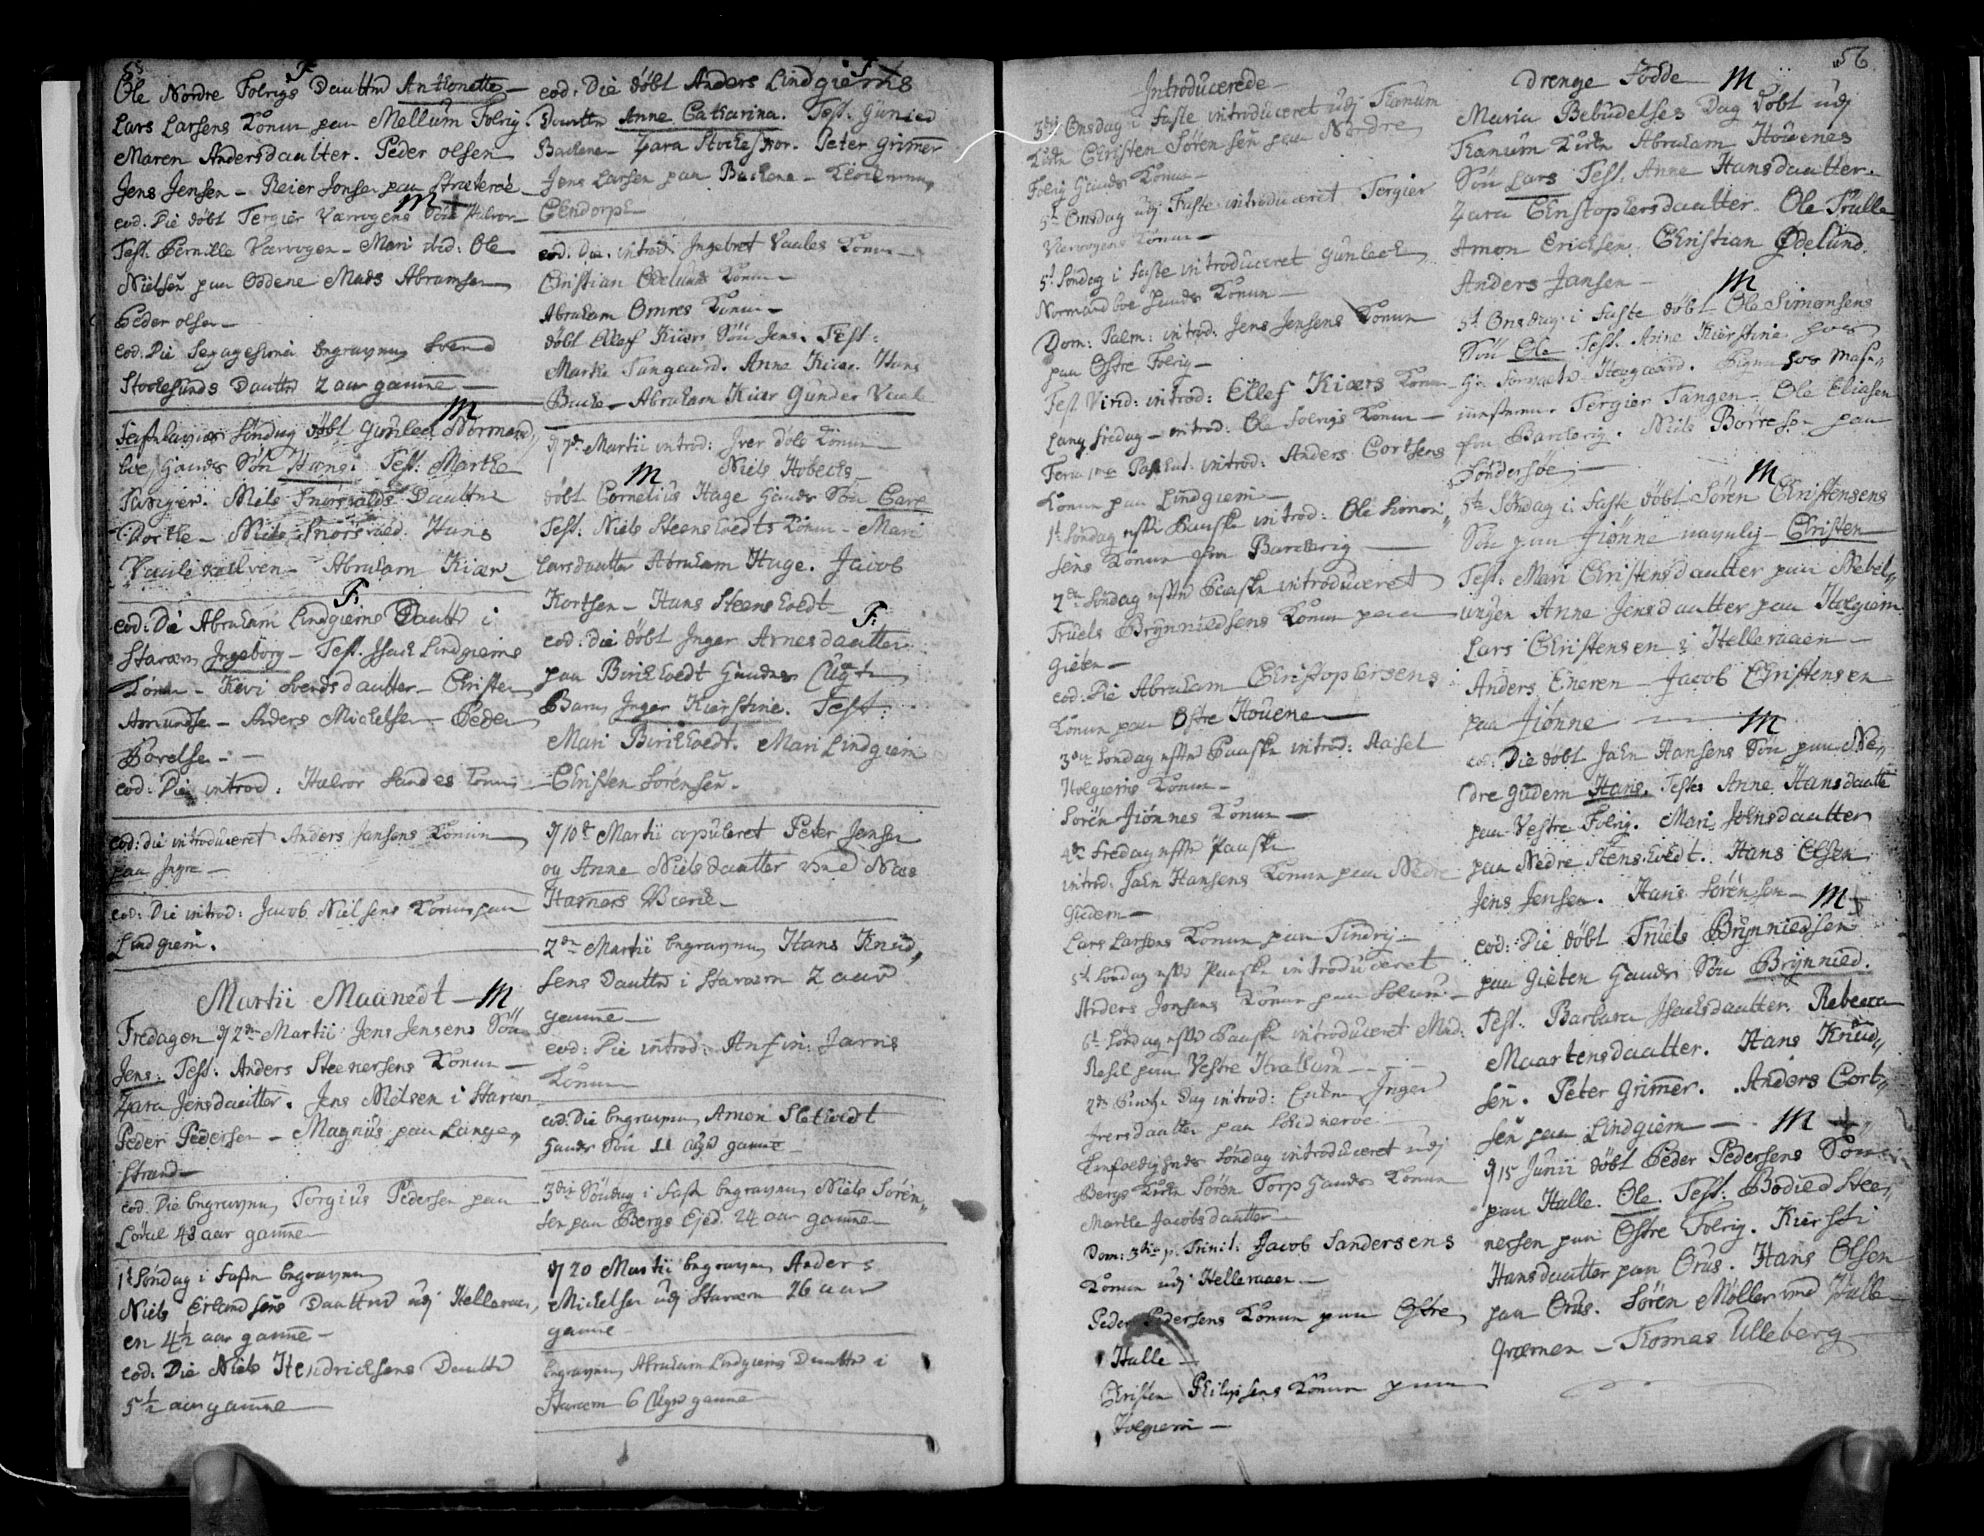 55
F
Ole Nordre Folvigs Daatter Anthonette
Lars Larsens Konun paa Mellum Folvig.
Maren Andersdaatter. Peder Olsen
Jens Jensen - Reier Jonsen paa Stræteröe
M
eod. Die döbt Tergier Værvogens Sön Halvor
Test. Pernille Værvogen - Mari ibid: Ole
Nielsen paa Oddene Mads Abramsen
Peder olsen
eod. Die begraven Svend
Stochesunds Daatter 2 aar gamme
M
Fastelavns Söndag döbt Gunlech Normand
boe, hands Sön Hans. Test: Marthe
Tanger. Niels Snorsvalds Daatter
Dorthe - Niels Snorsvald. Hans
Vaule Kallven - Abraham Kiær
F.
eod: Die Abraham Lindgiems Daatter i
Staværn Ingeborg - Test. Isach Lindgiems
Konun - Kevi obersdaatter - Christen
Amundsen - Anders Michelsen - Peder
Borelsen -
eod: Die introd: Halvor Sandes Konun
eod: die introduceret Anders Jansens Konun
paa Ingre -
eod: Die introd: Jacob Nielsens Konun paa
Lindgiem.
Martii Maanedt - M
Fredagen d 2den Martii Jens Jensens Sön
Jens. Test: Anders Steenersens Konun -
Zara Jensdaatter. Jens Nielsen i Staværn
Peder Pedersen - Magnus paa Lange
Strand -
eod. Die begraven Torgius Pedersen paa
48 aar gamme
1t Söndag i Faste begraven
Niels Erlandsens Daatter udj Hellevaa,
en 4½ aar gamme -
eod: Die Niels Hendrichsens Daatter
5½ aar gamme
F
eod: Die döbt Anders Lindgiems
Daatter Anne Catharina. Test: Gunied
Bachene - Zara Stochesnor. Peter Grimer
Jens Larsen paa Bachene -
Clendorph -
eod: Die. introd: Ingebret Vaales Konun
Christian Ödelunds Konun -
Abraham Omres Konun -
döbt Ellef Kiærs Sön Jens. Test:
Marthe Tangaard. Anne Kiær. Hans
Bache - Abraham Kiær Gunder Vaale
d 7de Martii introd: Iver Konun
M Niels Hobechs
döbt Cornelius Hage hands Sön Care
Test: Niels Steensholdts Konun - Mari
Larsdaatter Abraham Hage. Jacob
Kortsen - Hans Steensholdt
F:
eod: die döbt Inger Arnesdaatter
paa Birchholdt hendes Uægte
Barn Inger Kierstine. Test:
Mari Birchholdt. Mari Lindgiem
Christen Sörensen.
d 10de Martii copuleret Peter Jensen
og Anne Nielsdaatter ved Næs
Hamers Værk
2den Martii begraven Hans Knud,
sens Daatter i Staværn 2 aar
gamme -
eod: Die introd: Anfin Jarris
Konun
eod: Die begraven Amon Sletholdt
hands Sön 11 Uger gamme -
3die Söndag i Faste begraven Niels Sören,
sen paa Bergs Ejed. 24 aar gamme
d 20 Martii begraven Anders
Michelsen udj Staværn 26 aar
gamme
begraven Abraham Lindgiems Daatter i
Staværn 6 Uger gamme
Introducerede
3die Onsdag i Faste introduceret udj Tanum
Kirke Christen Sörensen paa Nordre
Folvig hands Konun -
5te Onsdag udj Faste introduceret Tergier
Værvogens Konun -
5t Söndag i Faste introduceret Gunlech
Normandboe hands Konun
Dom: Palm: introd: Jens Jensens Konun
paa Östre Folvig -
Fest Virid: introd: Ellef Kiærs Konun
Lang fredag - introd: Ole Folvigs Konun -
introd: Anders Cortsens
Konun paa Lindgiem
1t Söndag efter Paaske introd: Ole Simon
sens Konun fra Barchvig
2den Söndag efter Paaske introduceret
Truels Brynnieldsens Konun paa
Gieten -
eod: Die Abraham Christophersens
Konun paa Östre Houene
3die Söndag efter Paaske introd:
Holgiems Konun -
Sören Jiönnes Konun -
4de Fredag efter Paaske
introd: Jahn Hansens Konun paa Nedre
Gudem -
Lars Larsens Konun paa Tindvig
5t Söndag efter Paaske introduceret
Anders Jonsens Konun paa Solum -
6t Söndag efter Paaske introduceret Mad:
Resil paa Vestre Hrattum
2de Pintze Dag introd: Enken Inger
Iversdaatter paa
Trefoldigheds Söndag introduceret udj
Bergs Kirke Sören Torp hands Konun
Marthe Jacobsdaatter
Dom: 3tia p. Trinit: Jacob Sandersens
Konun udj Hellevaaen -
Peder Pedersens Konun paa Östre
Halle -
Christen Philipsens Konun paa
Holgiem -
56
Drenge Födde M
Maria Bebudelses Dag döbt udj
Tanum Kirke Abraham Houenes
Sön Lars Test: Anne Hansdaatter.
Zara Christophersdaatter. Ole Trulle
Amon Erichsen. Christian Ödelund.
Anders Jansen -
M
5t Onsdag i Faste döbt Ole Simonsens
Sön Ole Test. Anne Kierstine hos
Tergier Tangen - Ole Eliasen
fra Barchvig. Niels Börresen paa
Söndersöe
M
5te Söndag i Faste döbt Sören Christensens
Sön paa Jiönne navnlig - Christen
Test: Mari Christensdaatter paa Nebel,
ungen Anne Jensdaatter paa Holgiem
Lars Christensen i Hellevaaen
Anders Eneren - Jacob Christensen
paa Jiönne
M
eod: Die döbt Jahn Hansens Sön paa Ne,
dre Gudem Hans. Test: Anne Hansdaatter
paa Vestre Folvig. Mari Johnsdaatter
paa Nedre Stensholdt. Hans Olsen
Jens Jensen. Hans Sörensen - M
eod: Die döbt Truels Brynnieldsen
paa Gieten hands Sön Brynnield.
Test: Barbara Isachsdaatter. Rebecca
Maartensdaatter. Hans Knud,
sen. Peter Grimer. Anders Cort,
sen paa Lindgiem - M
d 15 Junii döbt Peder Pedersens Sön
paa Halle. Ole. Test: Bodied Stee,
nersen paa Östre Folvig. Kiersti
Hansdaatter paa Orus. Hans Olsen
paa Orus. Sören Möller ved Halle
qværnen - Thomas Ulleberg